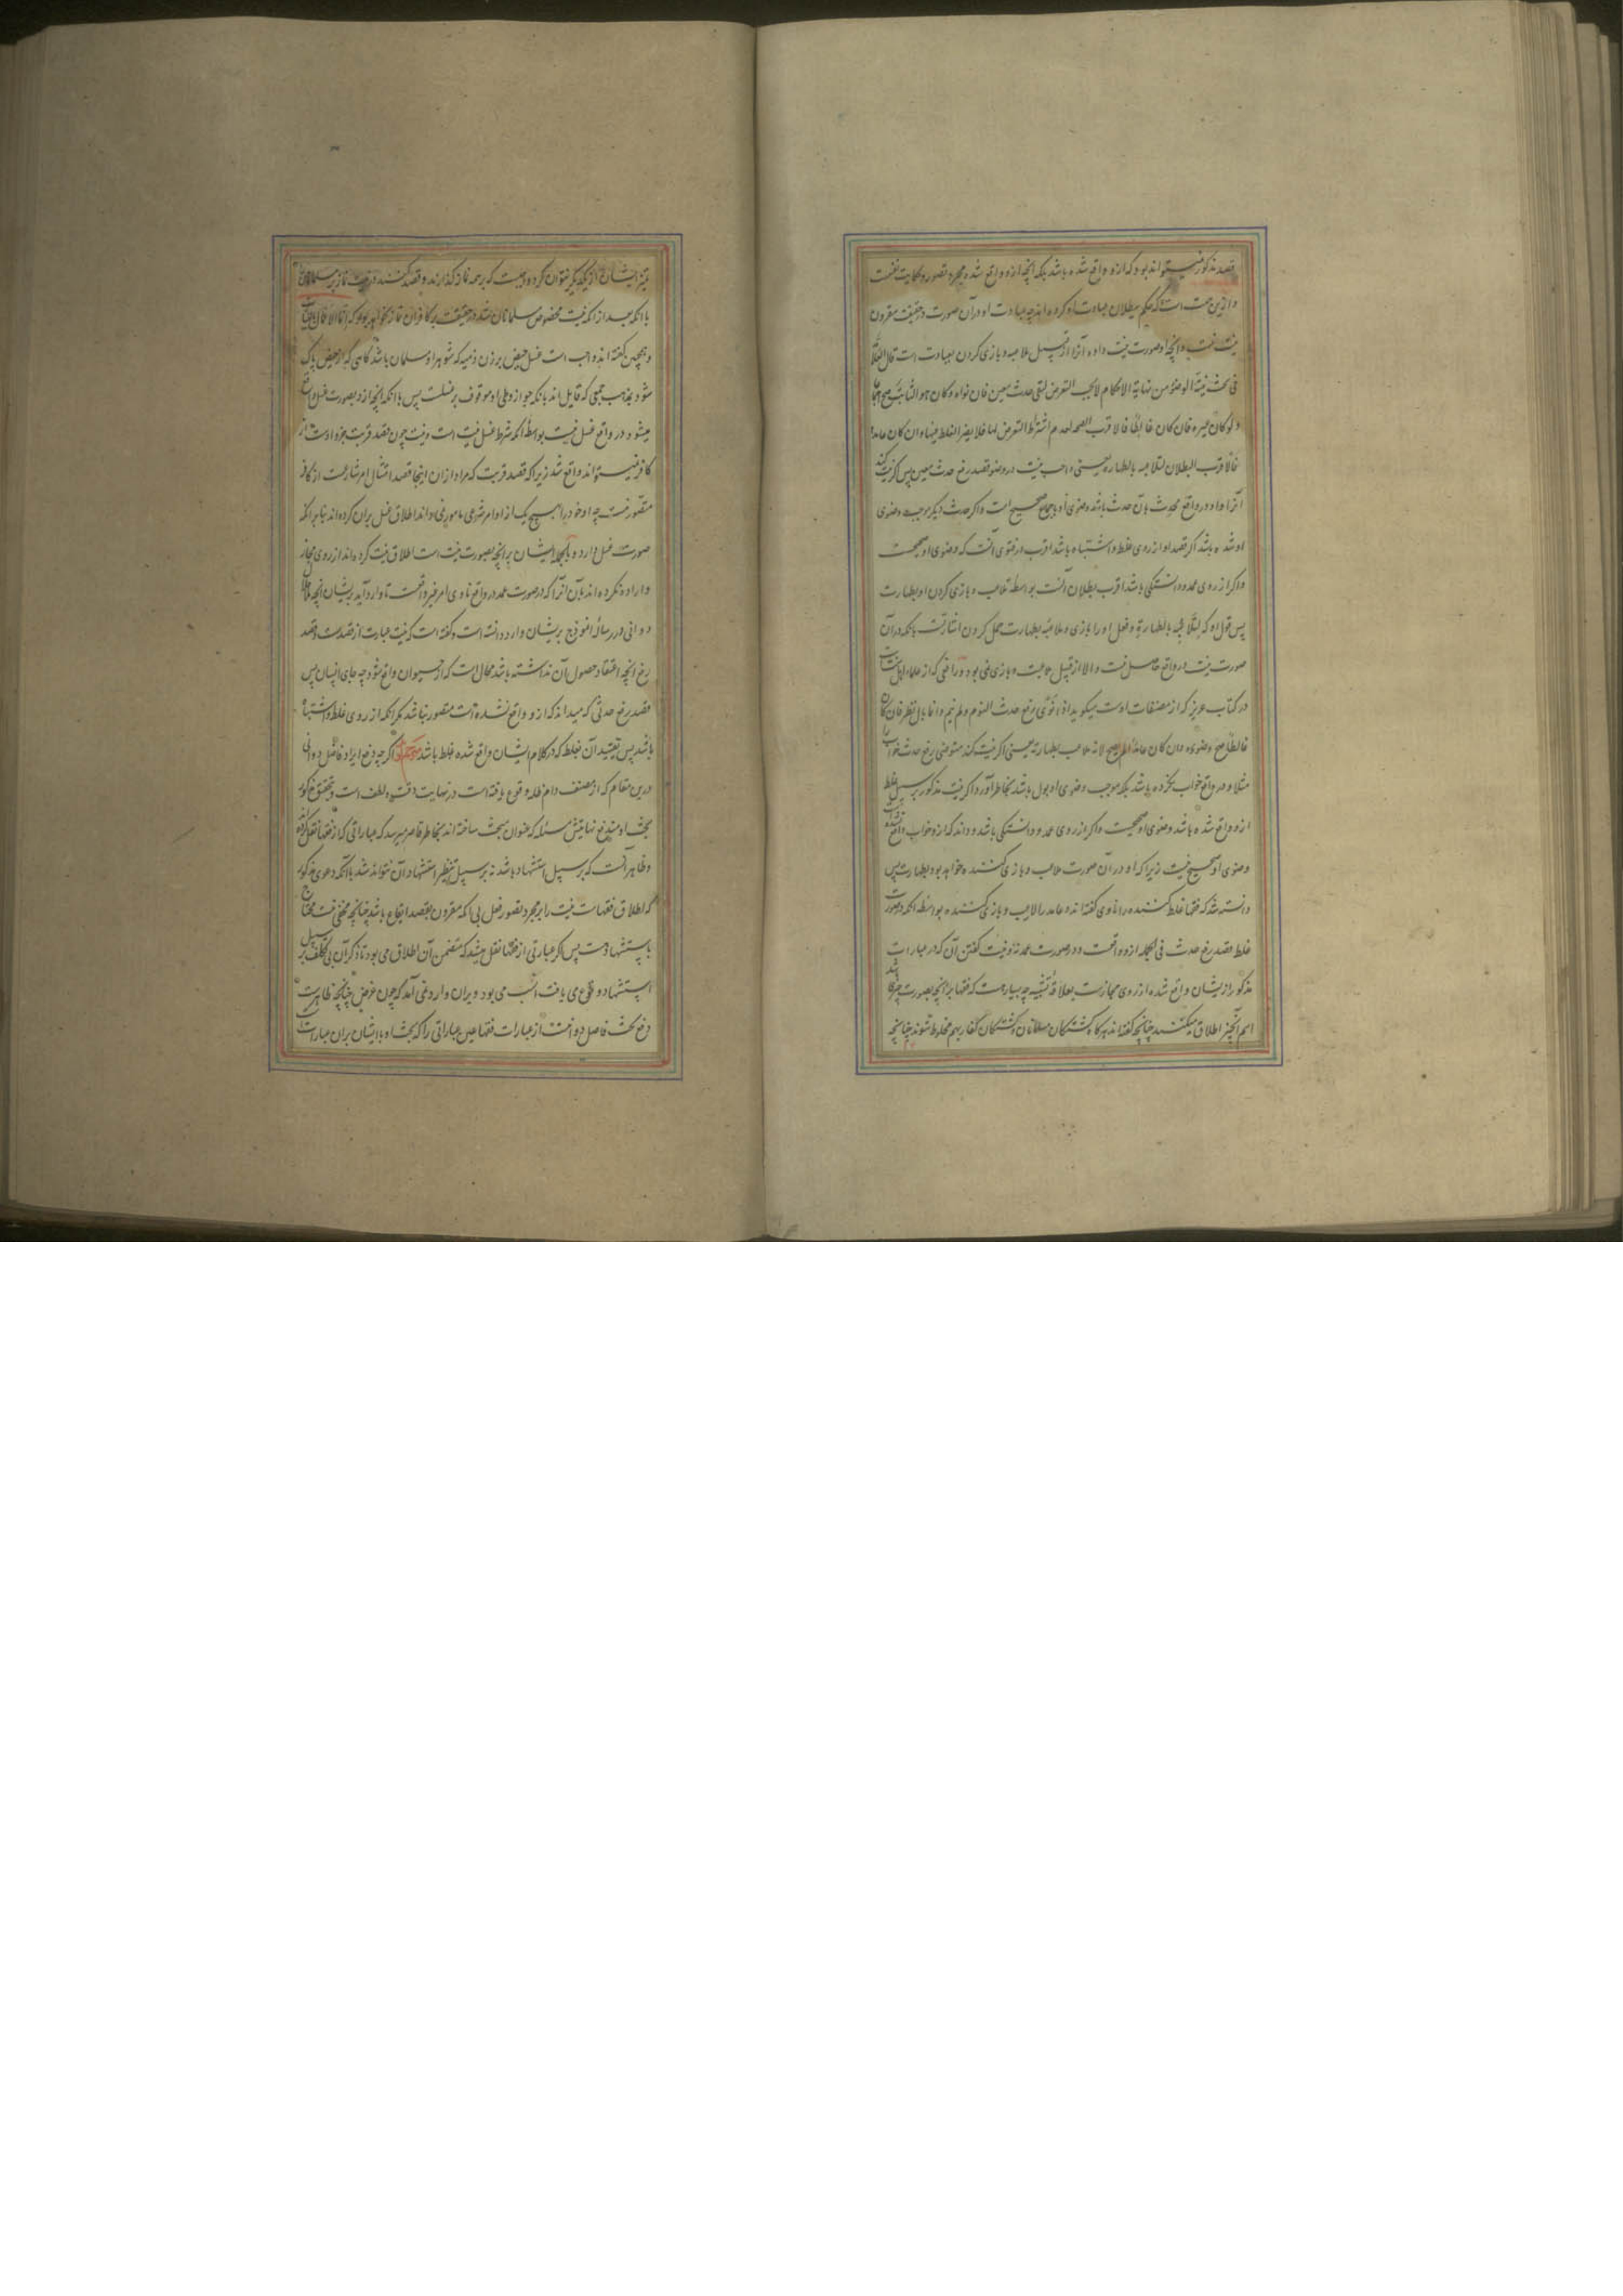 قصد مذکور نمیتواند بود که ازو واقع شده باشد بلکه آنچه ازو واقع شده مجرد تصور و حکایت نفست
و ازین جهت است که حکم ببطلان عبادت او کرده اند چه عبادت او در آن صورت در حقیقت مقرون
بنیت نیست و آنچه او صورت نیت داده آنرا از قبیل ملاعبه و بازی کردن بعبادت است قال العلامة
فی بحث نیة الوضوء من نهایة الاحکام لا یجب التعرض لنفی حدث معین فان نواه و کان هو الثابت صح اجماعا
و لو کان غیره فان کان غالطا فالاقرب الصحة لعدم اشتراط التعرض لها فلا یضر الغلط فیها و ان کان عامدا
فالاقرب البطلان لتلاعبه بالطهارة یعنی واجب نیست در وضو قصد رفع حدث معین پس اگر نیت کند
آنرا و او در واقع محدث بآن حدث باشد وضوی او باجماع صحیح است و اگر حدث دیگر موجب وضوی
او شده باشد اگر قصد او از روی غلط و اشتباه باشد اقرب در فتوی آنست که وضوی او صحیحست
و اگر از روی عمد و دانستگی باشد اقرب بطلان آنست بواسطه تلاعب و بازی کردن او بطهارت
پس قول او که لتلاعبه بالطهارة و فعل او را بازی و ملاعبه بطهارت حمل کردن اشارتست بآنکه در آن
صورت نیت در واقع حاصل نیست و الا از قبیل ملاعبت و بازی نمی بود و رافعی که از علماء اهل سنت است
در کتاب عزیز که از مصنفات اوست میگوید اذا نوی رفع حدث النوم و لم ینم و انما بال نظر فان کان
غالطا صح وضوءه و ان کان عامدا لم یصح لانه ملاعب بطهارته یعنی اگر نیت کند متوضی رفع حدث خواب را
مثلا و در واقع خواب نکرده باشد بلکه موجب وضوی او بول باشد بخاطر آورد اگر نیت مذکور بر سبیل غلط
ازو واقع شده باشد وضوی او صحیحست و اگر از روی عمد و دانستگی باشد و داند که ازو خواب واقع نشده است
وضوی او صحیح نیست زیرا که او در آن صورت ملاعب و بازی کننده خواهد بود بطهارت پس
دانسته شد که فقها غلط کننده را ناوی گفته اند و عامد را لاعب و بازی کننده بواسطه آنکه در صورت
غلط قصد رفع حدث فی الجمله ازو واقعست و در صورت عمد نه و نیت گفتن آن که در عبارات
مذکور از یشان واقع شده از روی مجازست بعلاقه تشبیه چه بسیارست که فقها بر آنچه بصورت چیزی باشد
اسم آنچیز اطلاق میکنند چنانچه گفته اند هرگاه کشتگان مسلمانان و کشتگان کفار بهم مخلوط شوند چنانچه
تمیز ایشان از یکدیگر نتوان کرد واجبست که بر همه نماز گذارند و قصد کنند در نیت نماز بر مسلمانان
با آنکه بعد از آنکه نیت مخصوص مسلمانان باشد در حقیقت بر کافران نماز نخواهد بود که
و همچنین گفته اند واجب است غسل حیض بر زن ذمیه که شوهر او مسلمان باشد گاهی که از حیض پاک
شود بمذهب جمعی که قایل اند بآنکه جواز وطی او موقوف بر غسلست پس با آنکه آنچه ازو بصورت غسل واقع
میشود در واقع غسل نیست بواسطه آنکه شرط غسل نیت است و نیت چون قصد قربت جزو اوست از
کافر نمیتواند واقع شد زیرا که قصد قربت که مراد ازان اینجا قصد امتثال امر شارعست از کافر
متصور نیست چه او خود را بهیچ یک از اوامر شرعی مامور نمی داند اطلاق غسل بران کرده اند بنابر آنکه
صورت غسل دارد و بالجمله ایشان بر آنچه بصورت نیت است اطلاق نیت کرده اند از روی مجاز
و اراده نکرده اند بآن آنرا که در صورت عمد در واقع ناوی امر غیر واقعست تا وارد آید بریشان آنچه علامه
دوانی در رساله انموذج بریشان وارد دانسته است و گفته است که نیت عبارت از قصدست و قصد
رفع آنچه اعتقاد حصول آن نداشته باشد محال است که از حیوان واقع شود چه جای انسان پس
قصد رفع حدثی که میداند که ازو واقع نشده است متصور نباشد مگر آنکه از روی غلط و اشتباه
باشد پس تقیید آن بغلط که در کلام ایشان واقع شده غلط باشد اگر چه دفع ایراد فاضل دوانی
درین مقام که از مصنف دام ظله وقوع یافته است در نهایت دقت و لطف است و تحقیق مذکور
بحث او مندفع نمایتش مسئله که عنوان مبحث ساخته اند بخاطر قاصر میرسد که عباراتی که از فقها نقل کرده
و ظاهر آنست که بر سبیل استشهاد باشد نه بر سبیل تنظیر استشهاد آن نتواند شد با آنکه دعوی مذکور
که اطلاق فقهاست نیت را بر مجرد تصور فعل بی آنکه مقرون بقصد ایقاع باشد چنانچه مخفی نیست محتاج
باستشهادست پس اگر عبارتی از فقها نقل میشد که متضمن آن اطلاق می بود تا ذکر آن بی تکلف بر سبیل
استشهاد وقوع می یافت انسب می بود و بران وارد نمی آمد که چون غرض چنانچه ظاهرست
دفع بحث فاضل دوانیست از عبارات فقها عین عباراتی را که بحث او با ایشان بران عبارات است